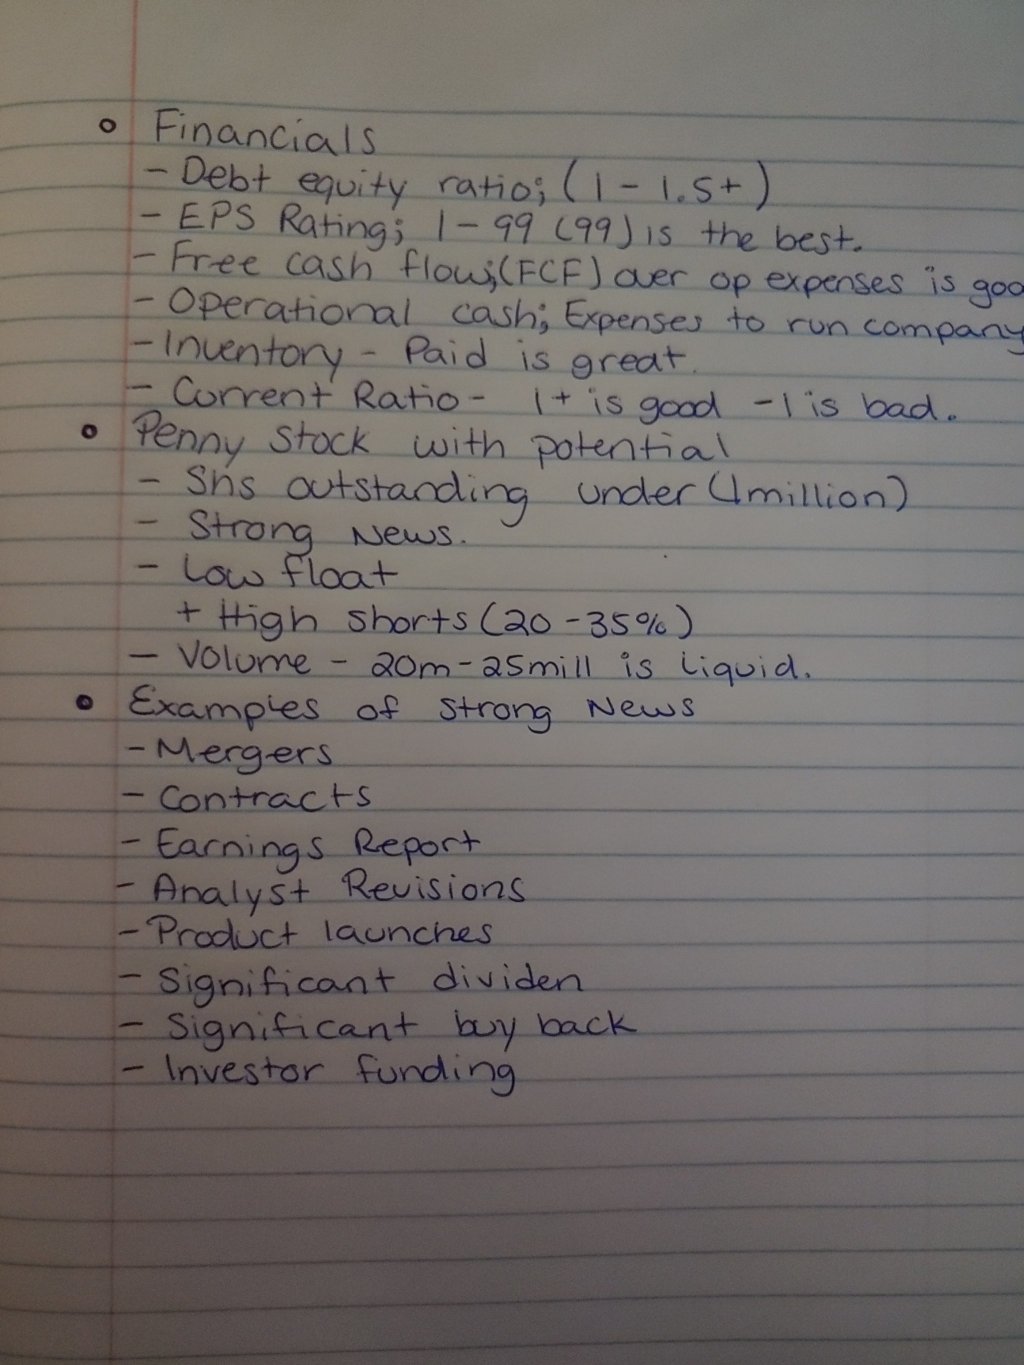 Financials
- Debt equity ratio; (1 - 1.5+)
- EPS Rating; 1 - 99 (99) is the best.
- Free cash flow;(FCF) over op expenses is goo
- Operational cash; Expenses to run company
- Inventory - Paid is great.
- Current Ratio - 1+ is good -1 is bad.
Penny Stock with potential
- Shs outstanding under (1million)
- Strong News.
- Low float
+ High shorts (20 - 35%)
- Volume - 20m - 25mill is liquid.
Examples of Strong News
- Mergers
- Contracts
- Earnings Report
- Analyst Revisions
- Product launches
- Significant dividen
- Significant buy back
- Investor funding